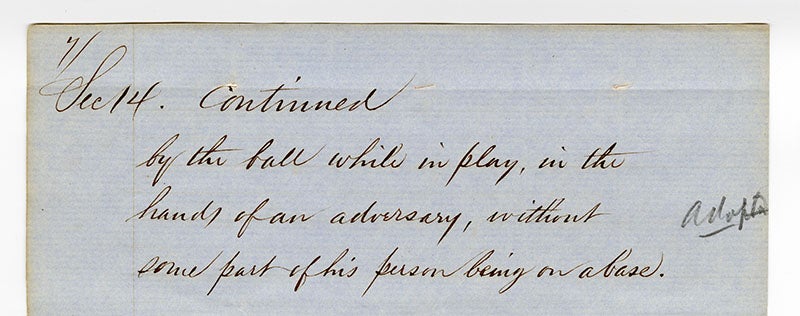 7/
Sec 14. Continued
by the ball while in play, in the
hands of an adversary, without
adopt
some part of his person being on a base.